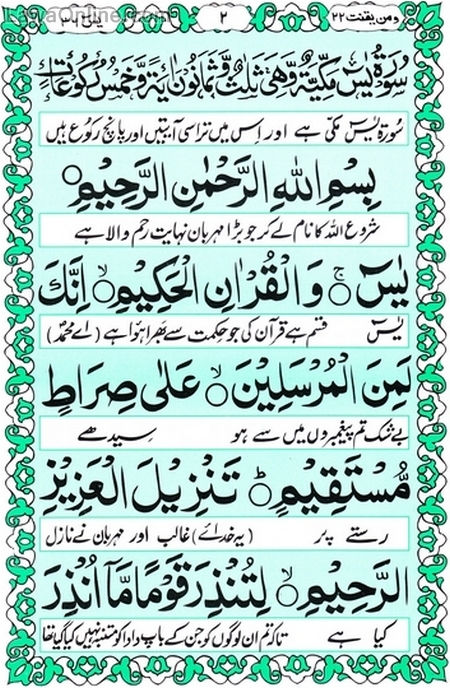 ومن یقنت ۲۲ ۲ یٰسٓ ۳۶
سُوْرَةُ يٰسٓ مَكِّيَّةٌ وَّهِيَ ثَلٰثٌ وَّثَمَانُوْنَ اٰيَةً وَّخَمْسُ رُكُوْعَاتٍ
سُورۃ یٰسٓ مکی ہے اور اِس میں تراسی آیتیں اور پانچ رکوع ہیں
بِسْمِ اللهِ الرَّحْمٰنِ الرَّحِيْمِ ○
شروع اللہ کا نام لے کر جو بڑا مہربان نہایت رحم والا ہے
يٰسٓ ○ۚ وَالْقُرْاٰنِ الْحَكِيْمِ ○ۙ اِنَّكَ
یٰسٓ قسم ہے قرآن کی جو حکمت سے بھرا ہوا ہے (اے محمدؐ)
لَمِنَ الْمُرْسَلِيْنَ ○ۙ عَلٰى صِرَاطٍ
بے شک تم پیغمبروں میں سے ہو سیدھے
مُّسْتَقِيْمٍ ○ؕ تَنْزِيْلَ الْعَزِيْزِ
رستے پر (یہ خدائے) غالب اور مہربان نے نازل
الرَّحِيْمِ ○ۙ لِتُنْذِرَ قَوْمًا مَّآ اُنْذِرَ
کیا ہے تاکہ تم ان لوگوں کو جن کے باپ دادا کو متنبہ نہیں کیا گیا تھا